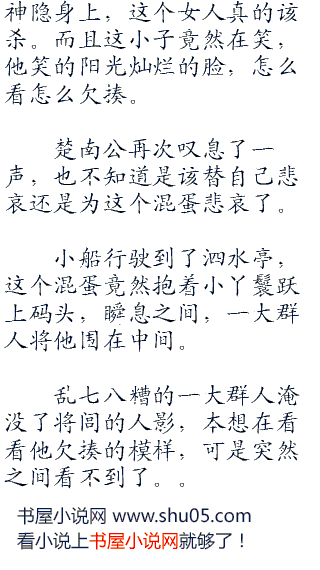 神隐身上，这个女人真的该
杀。而且这小子竟然在笑，
他笑的阳光灿烂的脸，怎么
看怎么欠揍。
楚南公再次叹息了一
声，也不知道是该替自己悲
哀还是为这个混蛋悲哀了。
小船行驶到了泗水亭，
这个混蛋竟然抱着小丫鬟跃
上码头，瞬息之间，一大群
人将他围在中间。
乱七八糟的一大群人淹
没了将闾的人影，本想在看
看他欠揍的模样，可是突然
之间看不到了。。
书屋小说网 www.shu05.com
看小说上书屋小说网就够了！